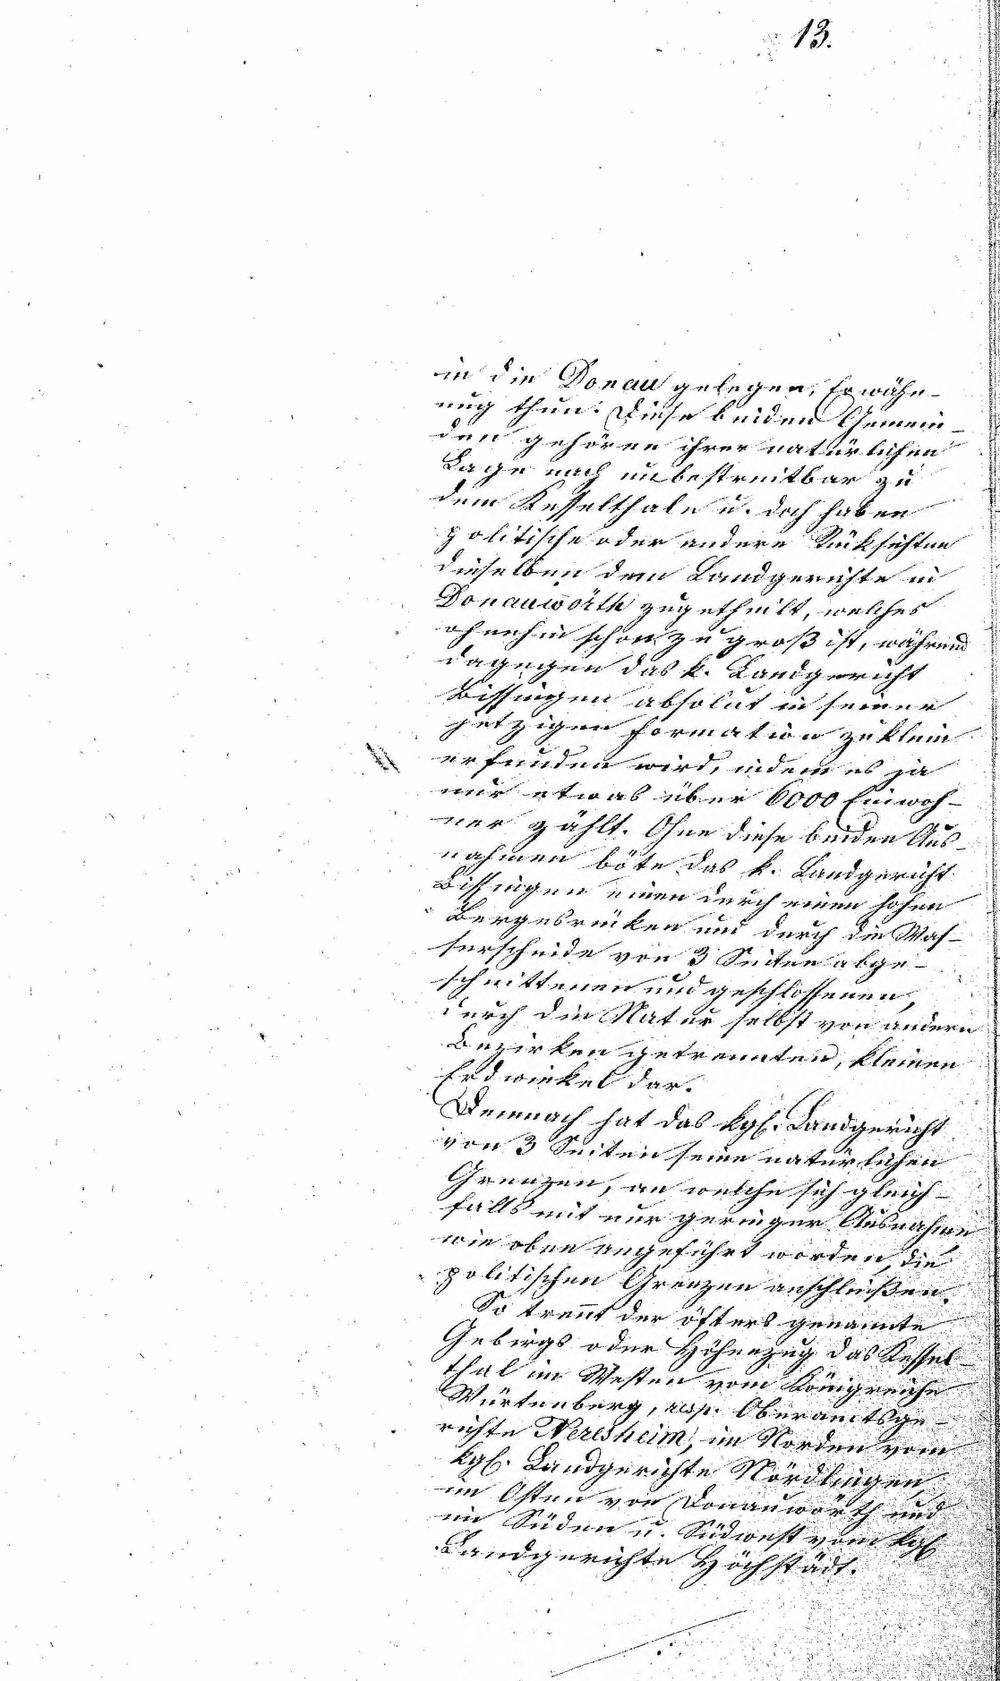 13.
in die Donau gelegen, Erwäh-
nug thun. Diese beiden Gemein-
den gehören ihrer natürlichen
Lage nach unbestreitbar zu
dem Kesselthale u. doch haben
politische oder andere Rücksichten
dieselben dem Landgerichte in
Donauwörth zugetheilt, welches
ohnehin schon zu groß ist, während
dagegen das k. Landgericht
Bissingen absolut in seiner
jetzigen Formation zu klein
erfunden wird, indem es ja
nur etwas über 6000 Einwoh-
ner zählt. Ohne diese beiden Aus-
nahmen böte das k. Landgericht
Bissingen einen durch einen hohen
Bergesrücken und durch die Was-
serscheide von 3 Seiten abge-
schnittenen und geschlossenen,
durch die Natur selbst von andern
Bezirken getrennten, kleinen
Erdwinkel dar.
Demnach hat das kgl. Landgericht
von 3 Seiten seine natürlichen
Grenzen, an welche sich gleich-
falls mit nur geringer Ausnahme
wie oben angeführt worden, die
politischen Grenzen anschließen.
So trennt der öfters genannte
Gebirgs oder Höhenzug das Kessel-
thal im Westen vom Königreiche
Würtenberg, resp. Oberamtsge-
richte Neresheim, im Norden vom
kgl. Landgerichte Nördlingen,
im Osten von Donauwörth und
im Süden u. Südwest vom kgl.
Landgerichte Höchstädt.